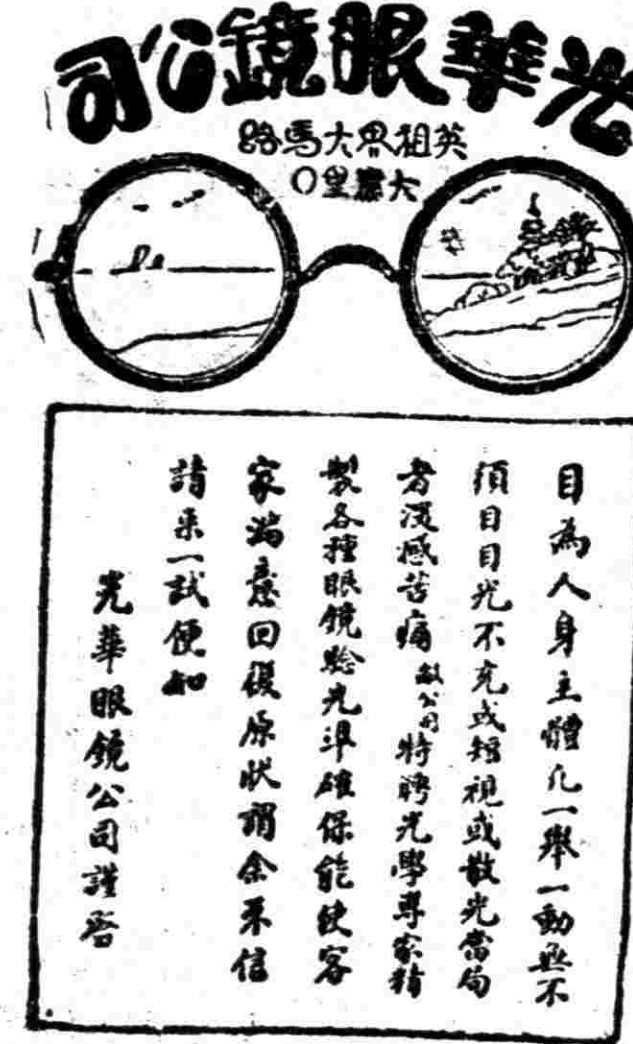 光華眼鏡公司
英租界大馬路
目為人身主體凡一舉一動無不
須目目光不充或短視或散光當局
者深感苦痛敝公司特聘光學專家精
製各種眼鏡驗光準確保能使客
家滿意回復原狀謂余不信
請來一試便知
光華眼鏡公司謹啓